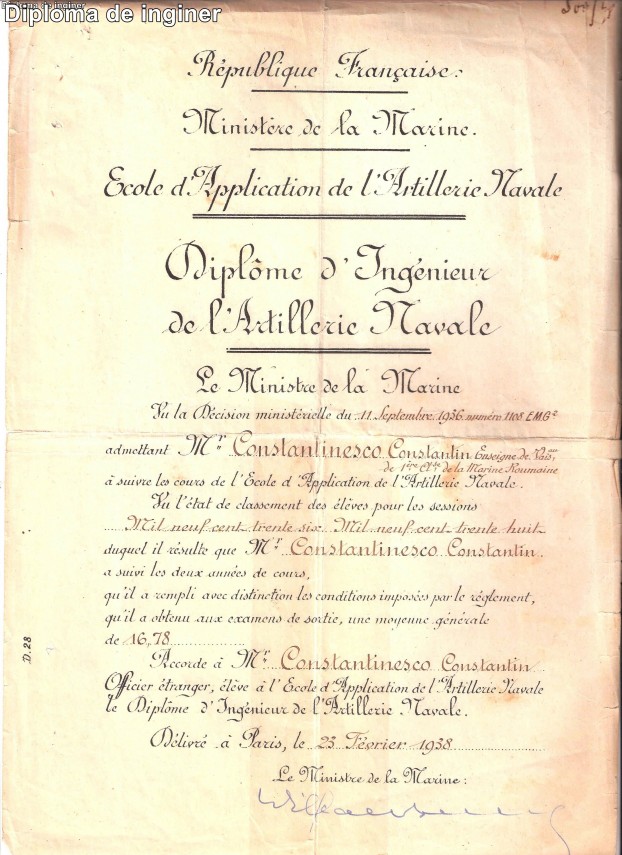 Diploma de inginer
Diploma de inginer
République Française.
Ministère de la Marine.
Ecole d'Application de l'Artillerie Navale
Diplôme d'Ingénieur
de l'Artillerie Navale
Le Ministre de la Marine
Vu la Décision ministérielle du 11 Septembre 1936 numéro 1108 E.M.G²
admettant Mr Constantinesco Constantin Enseigne de Vaisau
de 1ère Cl. de la Marine Roumaine
à suivre les cours de l'Ecole d'Application de l'Artillerie Navale.
Vu l'état de classement des élèves pour les sessions
Mil neuf cent trente six Mil neuf cent trente huit
duquel il résulte que Mr Constantinesco Constantin
a suivi les deux années de cours,
qu'il a rempli avec distinction les conditions imposées par le réglement,
qu'il a obtenu aux examens de sortie, une moyenne générale
de 16,78
Accorde à Mr Constantinesco Constantin
Officier étranger, élève à l'Ecole d'Application de l'Artillerie Navale
le Diplôme d'Ingénieur de l'Artillerie Navale.
Délivré à Paris, le 23 Février 1938
Le Ministre de la Marine :
D.28